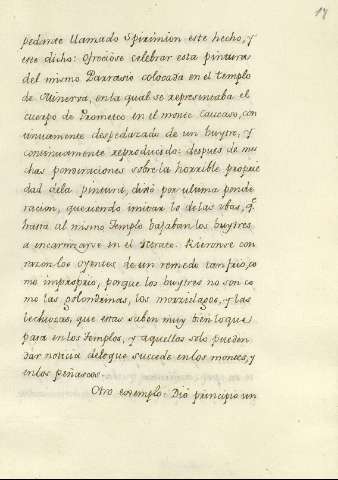 17
pedante llamado Spiridion este hecho, y
este dicho: ofrecióse celebrar esta pintura
del mismo Parrasio colocada en el templo
de Minerva, en la qual se representaba el
cuerpo de Prometeo en el monte Caucaso, con
tinuamente despedazado de un buytre, y
continuamente reproducido: despues de mu
chas ponderaciones sobre la horrible proprie
dad dela pintura, dixo por ultima ponde
racion, queriendo imitar lo delas ubas, q.
hasta al mismo Templo bajaban los buytres
a encarnizarse en el Retrato. Rieronse con
razon los oyentes de un remedo tan frio, co
mo improprio, porque los buytres no son co
mo las golondrinas, los morzielagos, y las
lechuzas, que estas saben muy bien lo que
pasa en los Templos, y aquellos solo pueden
dar noticia delo que sucede en los montes, y
en los peñascos.
Otro exemplo: Dió principio un